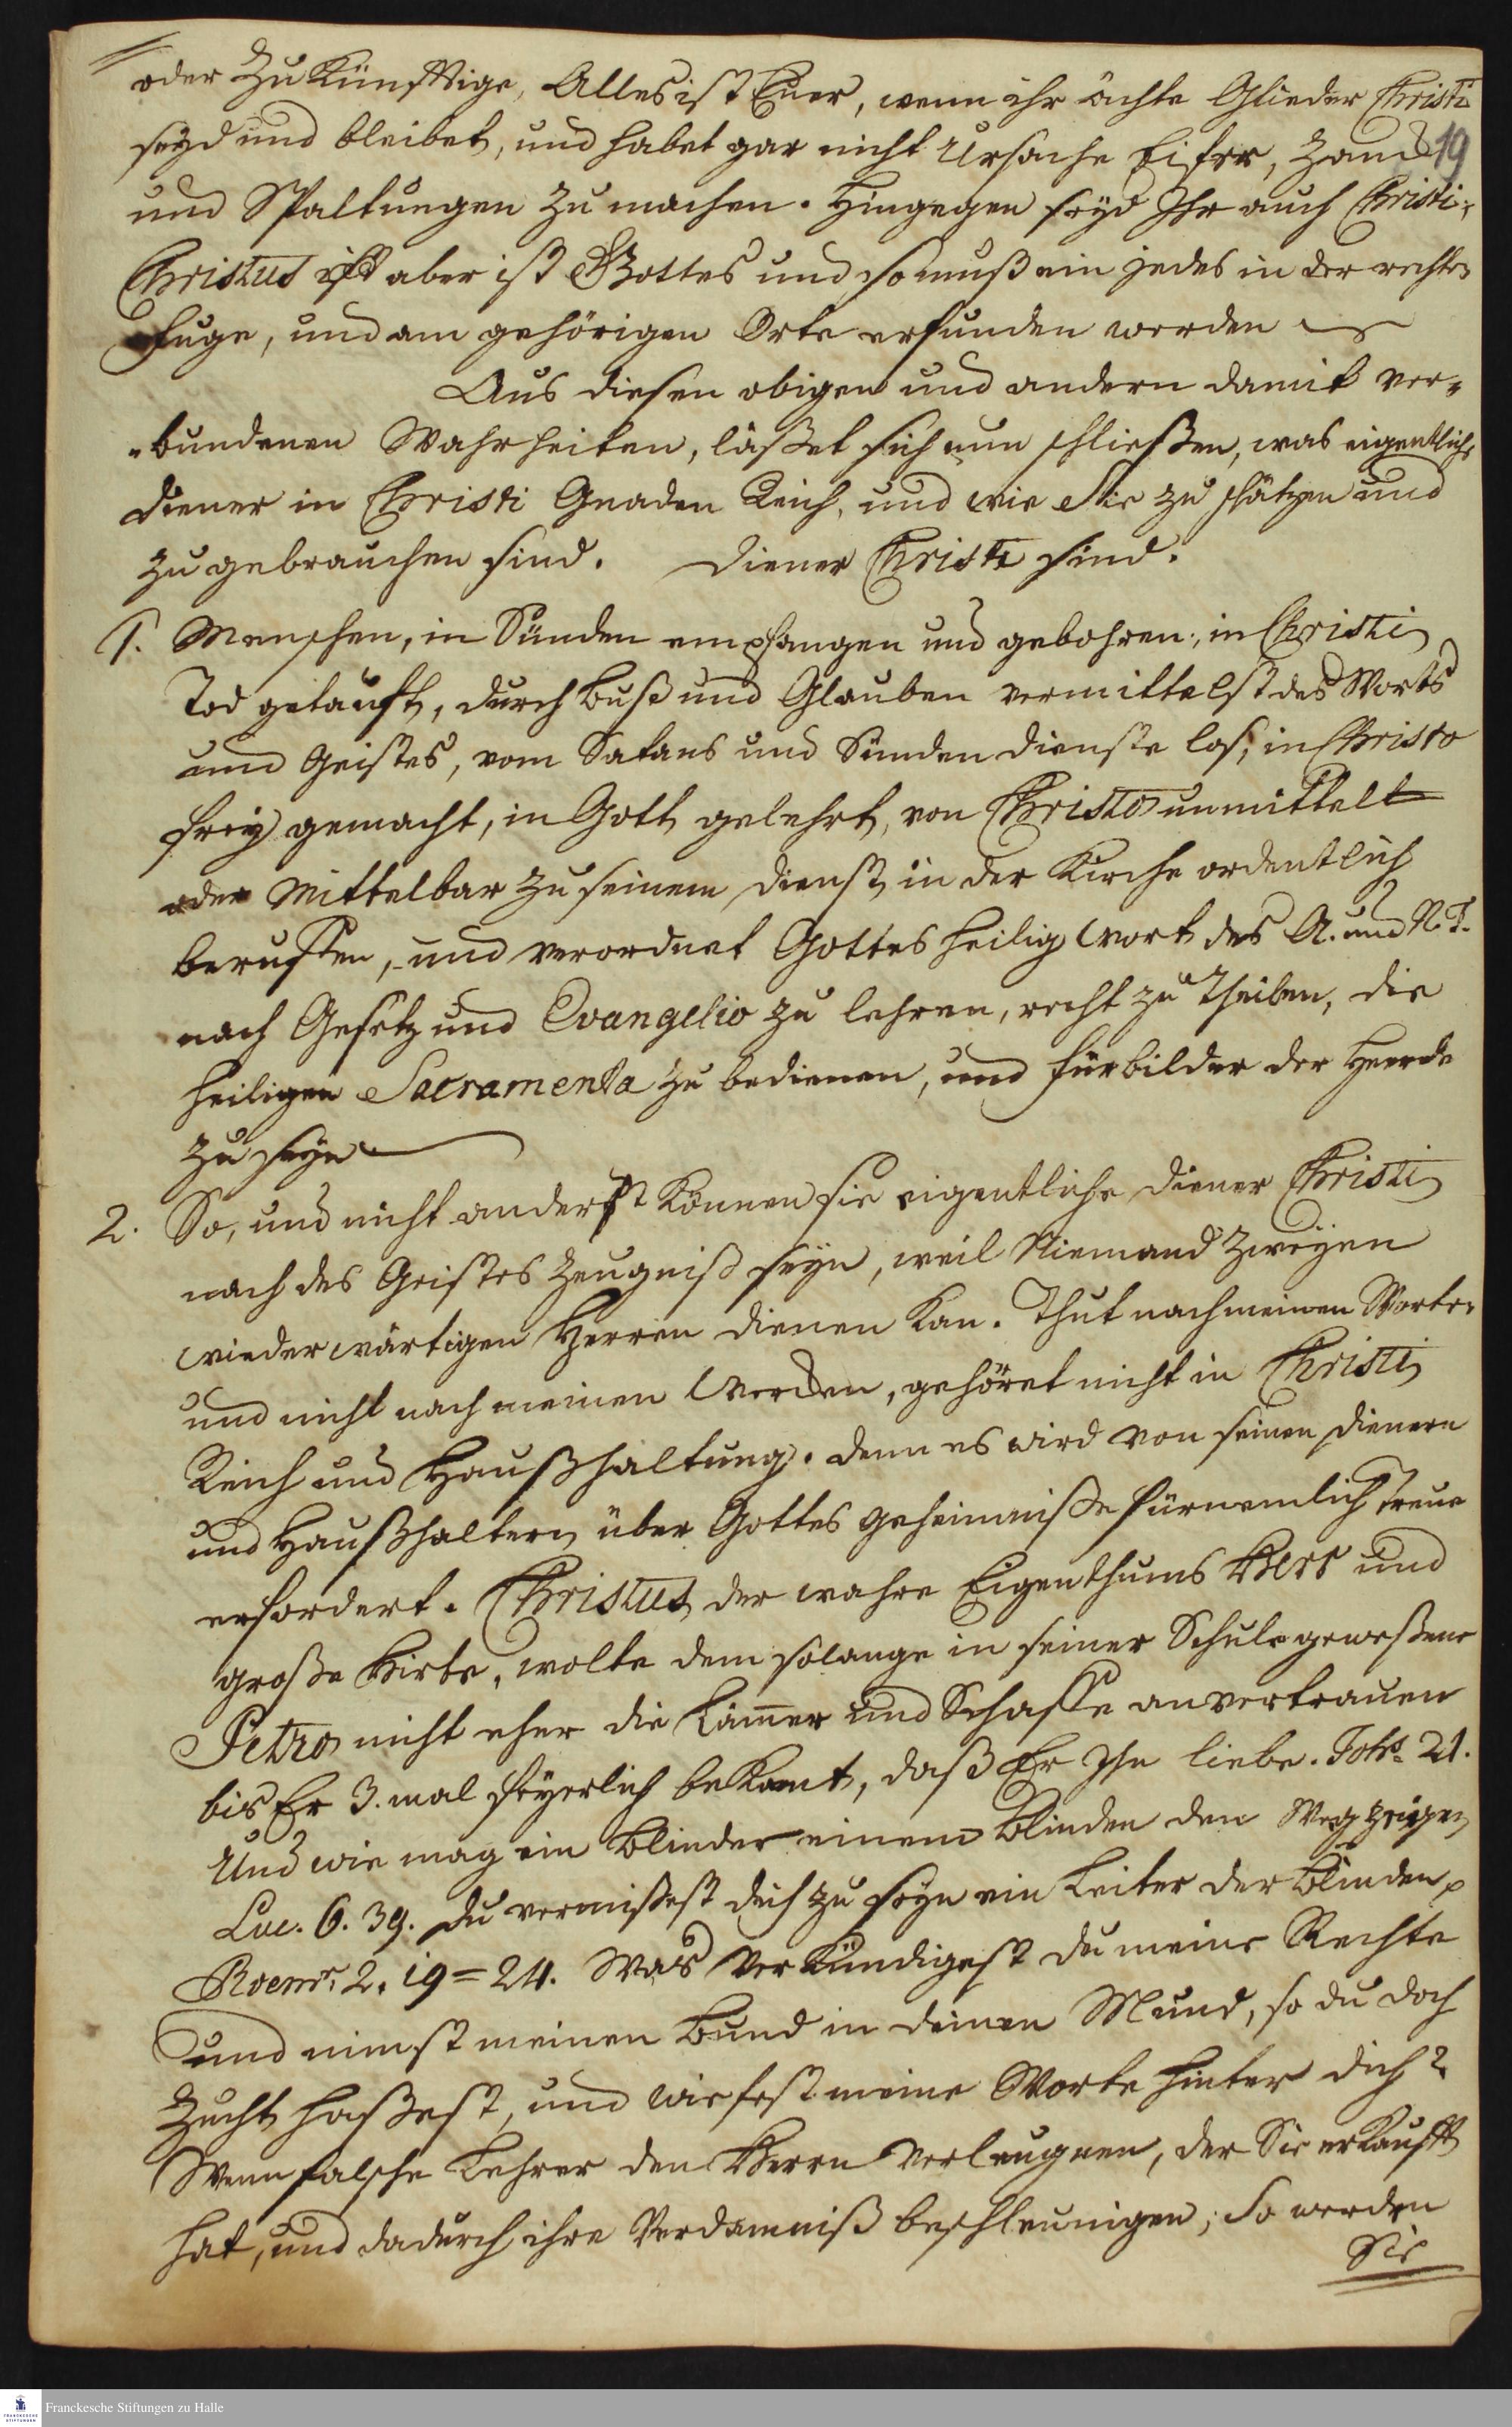 oder zu Künfftige, Alles ist Euer, wenn ihr ächte Glieder Christi
seyd und bleibet, und habet gar nicht Ursache Eifer, Zanck 19
und Spaltungen zu machen. Hingegen seyd Ihr auch Christi;
Christus ist aber ist Gottes und so muß ein jedes in der rechten
Fuge, und am gehörigen Orte erfunden werden
Aus diesen obigen und andern damit ver-
-bundenen Wahrheiten, läßet sich nun schließen, was eigentliche
Diener in Christi Gnaden Reich, und wie Sie zu schätzen und
zu gebrauchen sind. Diener Christi sind.
1. Menschen, in Sünden empfangen und gebohren, in Christi
Tod getaufft, durch Buß und Glauben vermittelst des Worts
und Geistes, vom Satans und Sünden Dienste los, in Christo
frey gemacht, in Gott gelehrt, von Christo unmittel
oder Mittelbar zu seinem Dienst in der Kirche ordentlich
beruffen, und verordnet Gottes heilig Wort des A. und N. T.
nach Gesetz und Evangelio zu lehren, recht zu theilen, die
heiligen Sacramenta zu bedienen, und Fürbilder der Heerde
zu seyn
2. So, und nicht anderst Können sie eigentliche Diener Christi
nach des Geistes Zeugniß seyn, weil Niemand zweyen
wiederwärtigen Herren dienen Kan. Thut nach meinen Worten
und nicht nach meinen Wercken, gehöret nicht in Christi
Reich und Haußhaltung. denn es wird von seinen Dienern
und Haußhaltern über Gottes Geheimniße fürnemlich Treue
erfordert. Christus der wahre Eigenthums Herr und
große Hirte, wolte dem solange in seiner Schule geweßene
Petro nicht eher die Läm̅er und Schaffe anvertrauen
bis Er 3. mal feyerlich beKant, daß Er Ihn liebe. Joh: 21.
Und wie mag ein Blinder einem Blinden den Weg zeigen
Luc. 6. 39. Du vermißest dich zu seyn ein Leiter der Blinden
Roem: 2. 19=24. Was VerKündigest du meine Rechte
und nimst meinen Bund in deinen Mund, so du doch
Zucht haßest, und wirfest meine Worte hinter dich?
Wenn falsche Lehrer den Herrn Verleugnen, der Sie erKaufft
hat, und dadurch ihre Verdamniß beschleunigen, So werden
Sie
Franckesche Stiftungen zu Halle